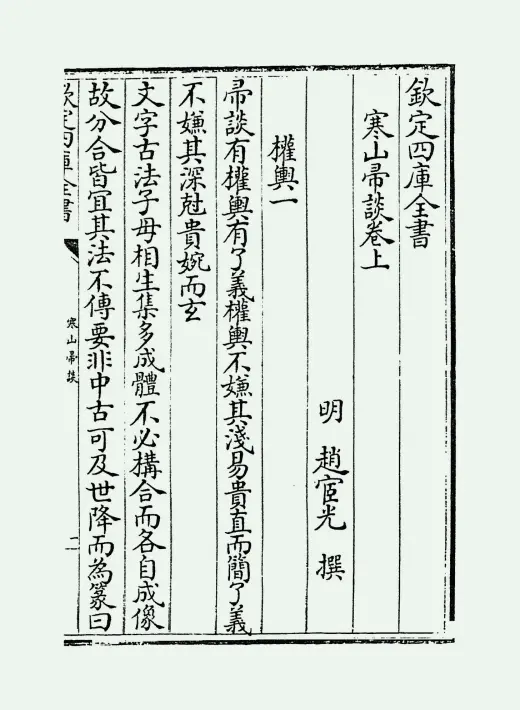 欽定四庫全書
寒山帚談卷上
明 趙宧光 撰
權輿一
帚談有權輿有了義權輿不嫌其淺易貴直而簡了義
不嫌其深尅貴婉而玄
文字古法子母相生集多成體不必構合而各自成像
故分合皆宜其法不傳要非中古可及世降而為篆曰
欽定四庫全書
寒山帚談
一